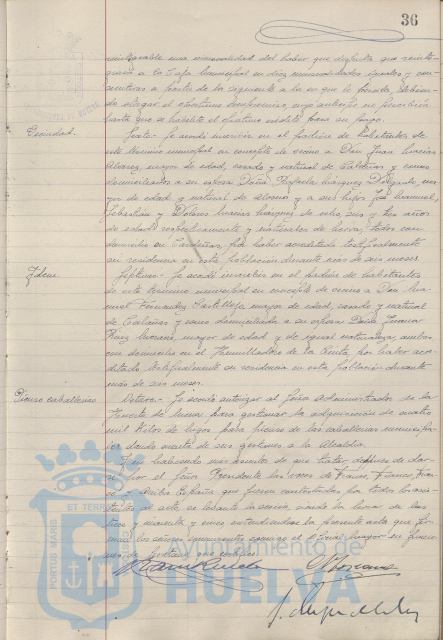 36
reintegrable una mensualidad del haber que disfruta que reinte-
grará a la Caja Municipal en diez mensualidades iguales y con-
secutivas a partir de la siguiente a la en que le
el oportuno
hasta que se habilite el oportuno crédito para su pago.
Vecindad.
Sexto: Se acordó inscribir en el Padrón de habitantes de
este término municipal en concepto de vecino a Don Juan Macías
Alvarez, mayor de edad, casado y natural de Calañas y como
domiciliados a su esposa Doña Rafaela Márquez Delgado, ma-
yor de edad y natural de Alosno y a sus hijos José Manuel,
Sebastián y Dolores Macías Márquez de ocho, seis y tres años
de edad respectivamente y naturales de Nerva, todos con
domicilio en Cardeñas, por haber acreditado testificalmente
su residencia en esta población durante más de seis meses.
Idem.
Septimo: Se acordó inscribir en el Padrón de habitantes
de este término municipal en concepto de vecino a Don Ma-
nuel Fernández Castilleja, mayor de edad, casado y natural
de Calañas y como domiciliada a su esposa Doña
Ruiz Moreno, mayor de edad y de igual naturaleza, ambos
con domicilio en el Humilladero de la Cinta, por haber acre-
ditado testificalmente su residencia en esta población durante
más de seis meses.
Pienso caballerías
Octavo: Se acordó autorizar al Señor Administrador de la
para gestionar la adquisición de cuatro
mil kilos de higos para pienso de las caballerías municipa-
les dando cuenta de sus gestiones a la Alcaldía.
Y no habiendo más asuntos de que tratar, después de dar-
se por el Señor Presidente las voces de Franco, Franco, Fran-
co y Arriba España que fueron contestadas por todos los asis-
tentes al acto se levantó la sesión, siendo la hora de las
trece y cuarenta y cinco extendiéndose la presente acta que fir-
man los señores asistentes conmigo el Oficial Mayor en funcio-
nes de Secretario, que certifico.
PORTUS MARIS ET TERRAE
Ayuntamiento de
HUELVA